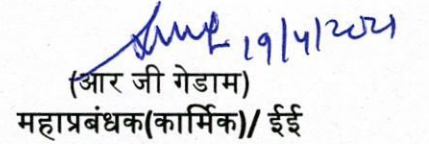 19/4/2021
(आर जी गेडाम)
महाप्रबंधक(कार्मिक)/ ईई